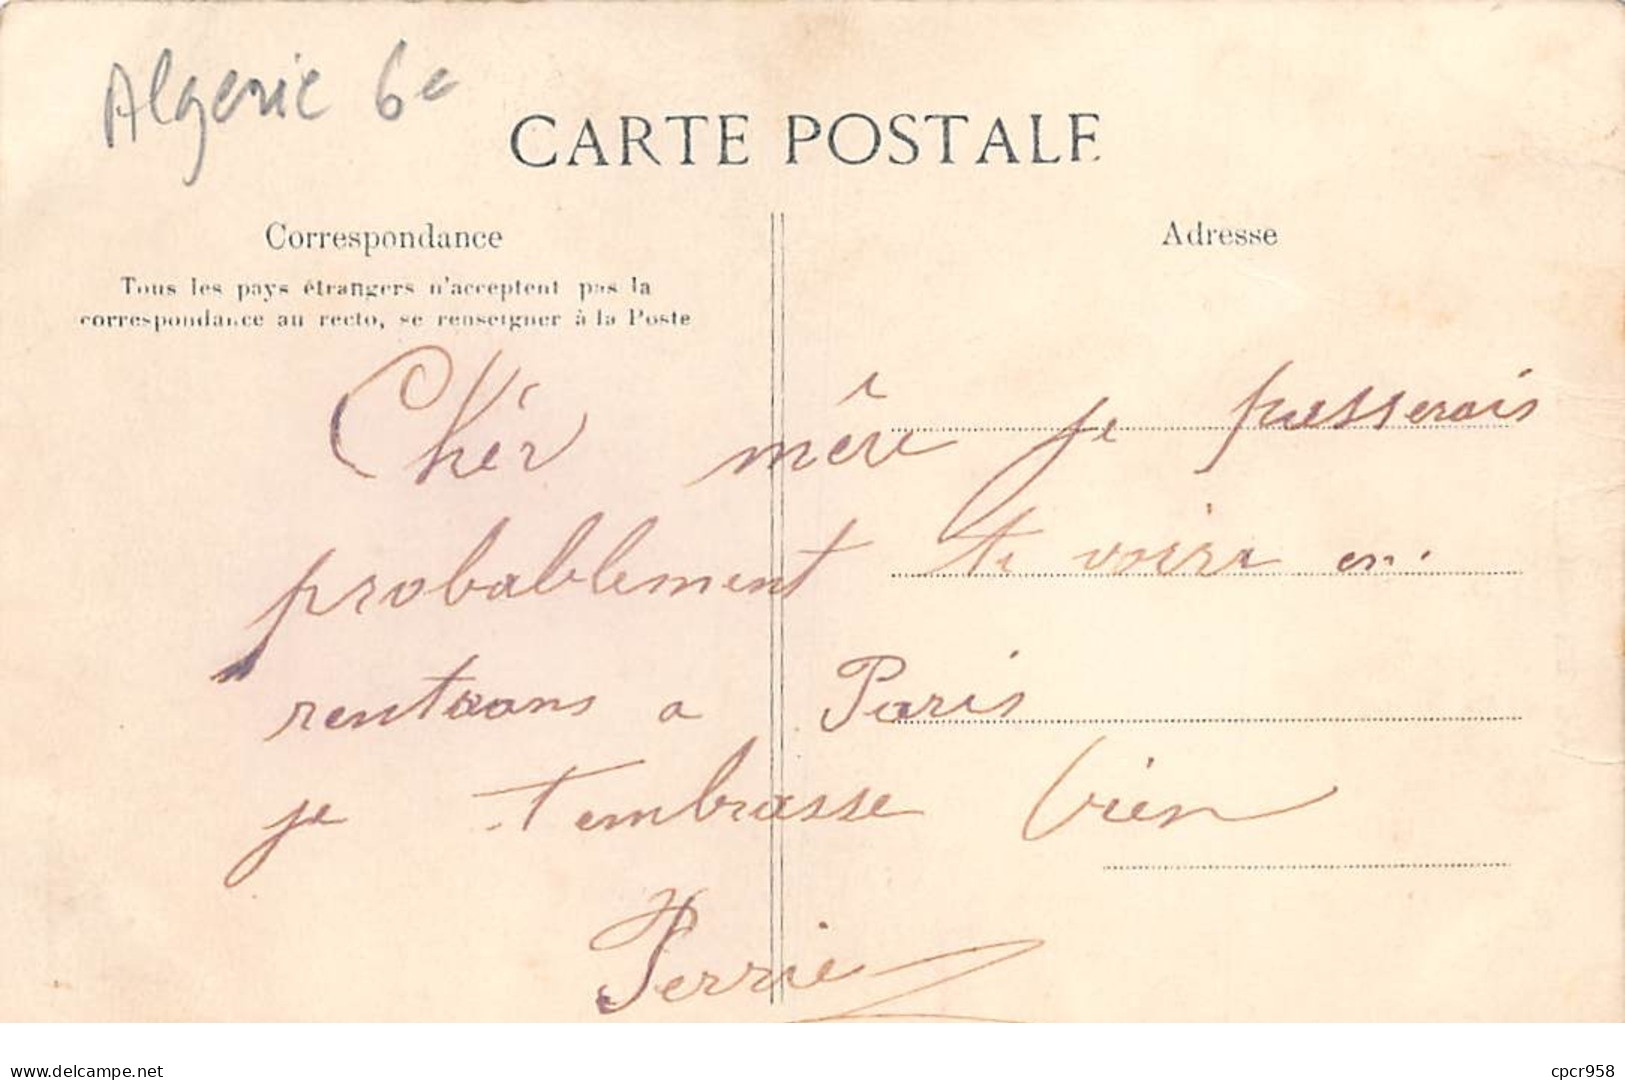 Algerie 6e
CARTE POSTALE
Correspondance
Adresse
Tous les pays étrangers n'acceptent pas la
correspondance au recto, se renseigner à la Poste
Chér mêre je passerais
probablement te voire en
rentrans a Paris
je t'embrasse bien
Perrie
www.delcampe.net
cpcr958